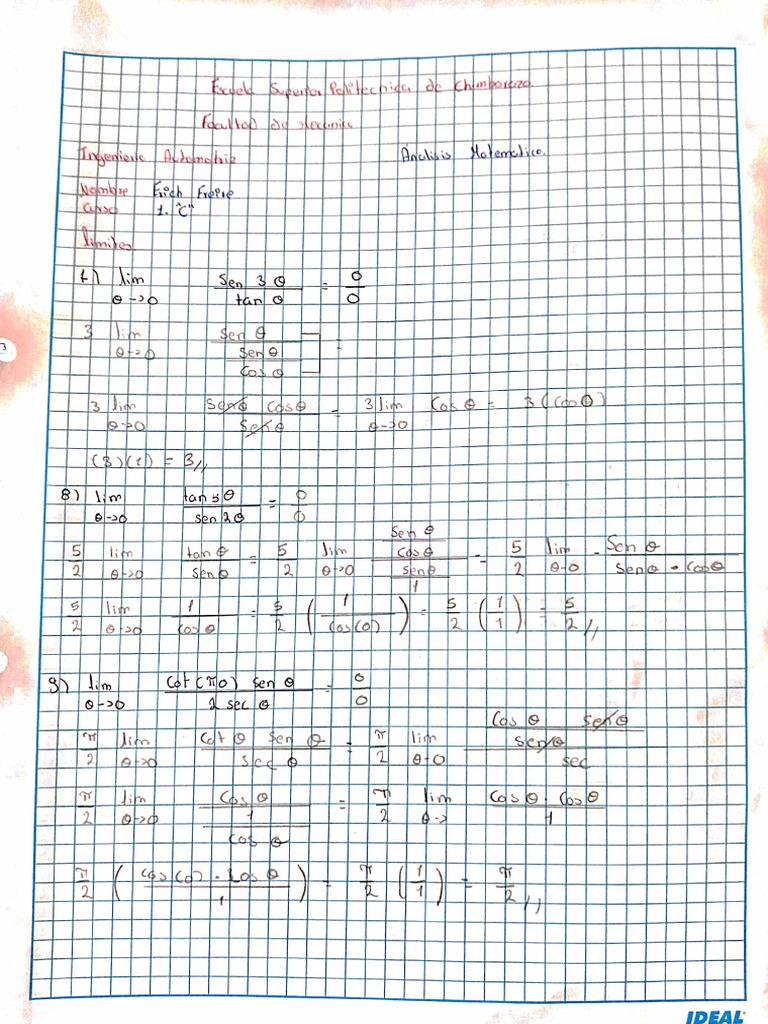 Escuela Superior Politecnica de Chimborazo.
Facultad de Mecanica
Ingenieria Automotriz Analisis Matematico.
Nombre Erich Freire
Curso 1. "C"
Limites
7) lim θ→0 sen 3θ / tan θ = 0/0
3 lim θ→0 sen θ / (sen θ / cos θ) =
3 lim θ→0 senθ cosθ / senθ = 3 lim θ→0 cos θ = 3 (cos θ)
(3)(1) = 3//
8) lim θ→0 tan 5θ / sen 2θ = 0/0
5/2 lim θ→0 tan θ / sen θ = 5/2 lim θ→0 (sen θ / cos θ) / (sen θ / 1) = 5/2 lim θ→0 sen θ / senθ · cosθ
5/2 lim θ→0 1 / cos θ = 5/2 (1 / cos(0)) = 5/2 (1/1) = 5/2 //
9) lim θ→0 cot(πθ) sen θ / 2 sec θ = 0/0
π/2 lim θ→0 cot θ sen θ / sec θ = π/2 lim θ→0 (cos θ senθ / senθ) / sec
π/2 lim θ→0 cos θ / (1 / cos θ) = π/2 lim θ→ cos θ · cos θ / 1
π/2 (cos(0) · cos θ / 1) = π/2 (1/1) = π/2 //
3
IDEAL